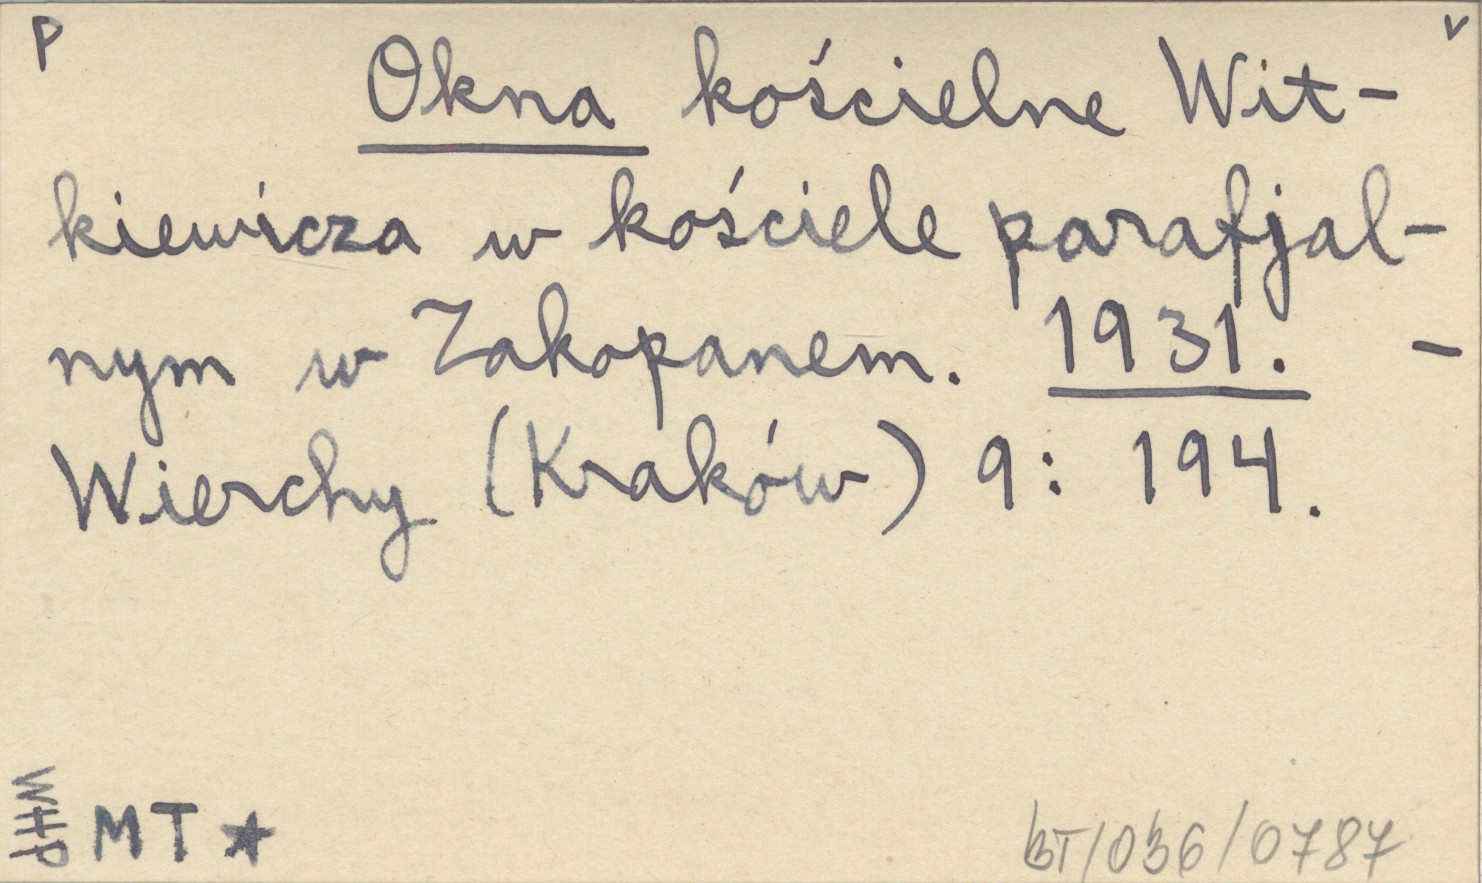 P v
Okna kościelne Wit-
kiewicza w kościele parafjal-
nym w Zakopanem. 1931. -
Wierchy (Kraków) 9: 194.
WHP MT ★
BT/036/0787